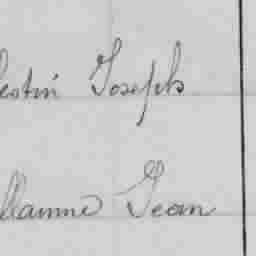 estin Joseph
llaume Jean